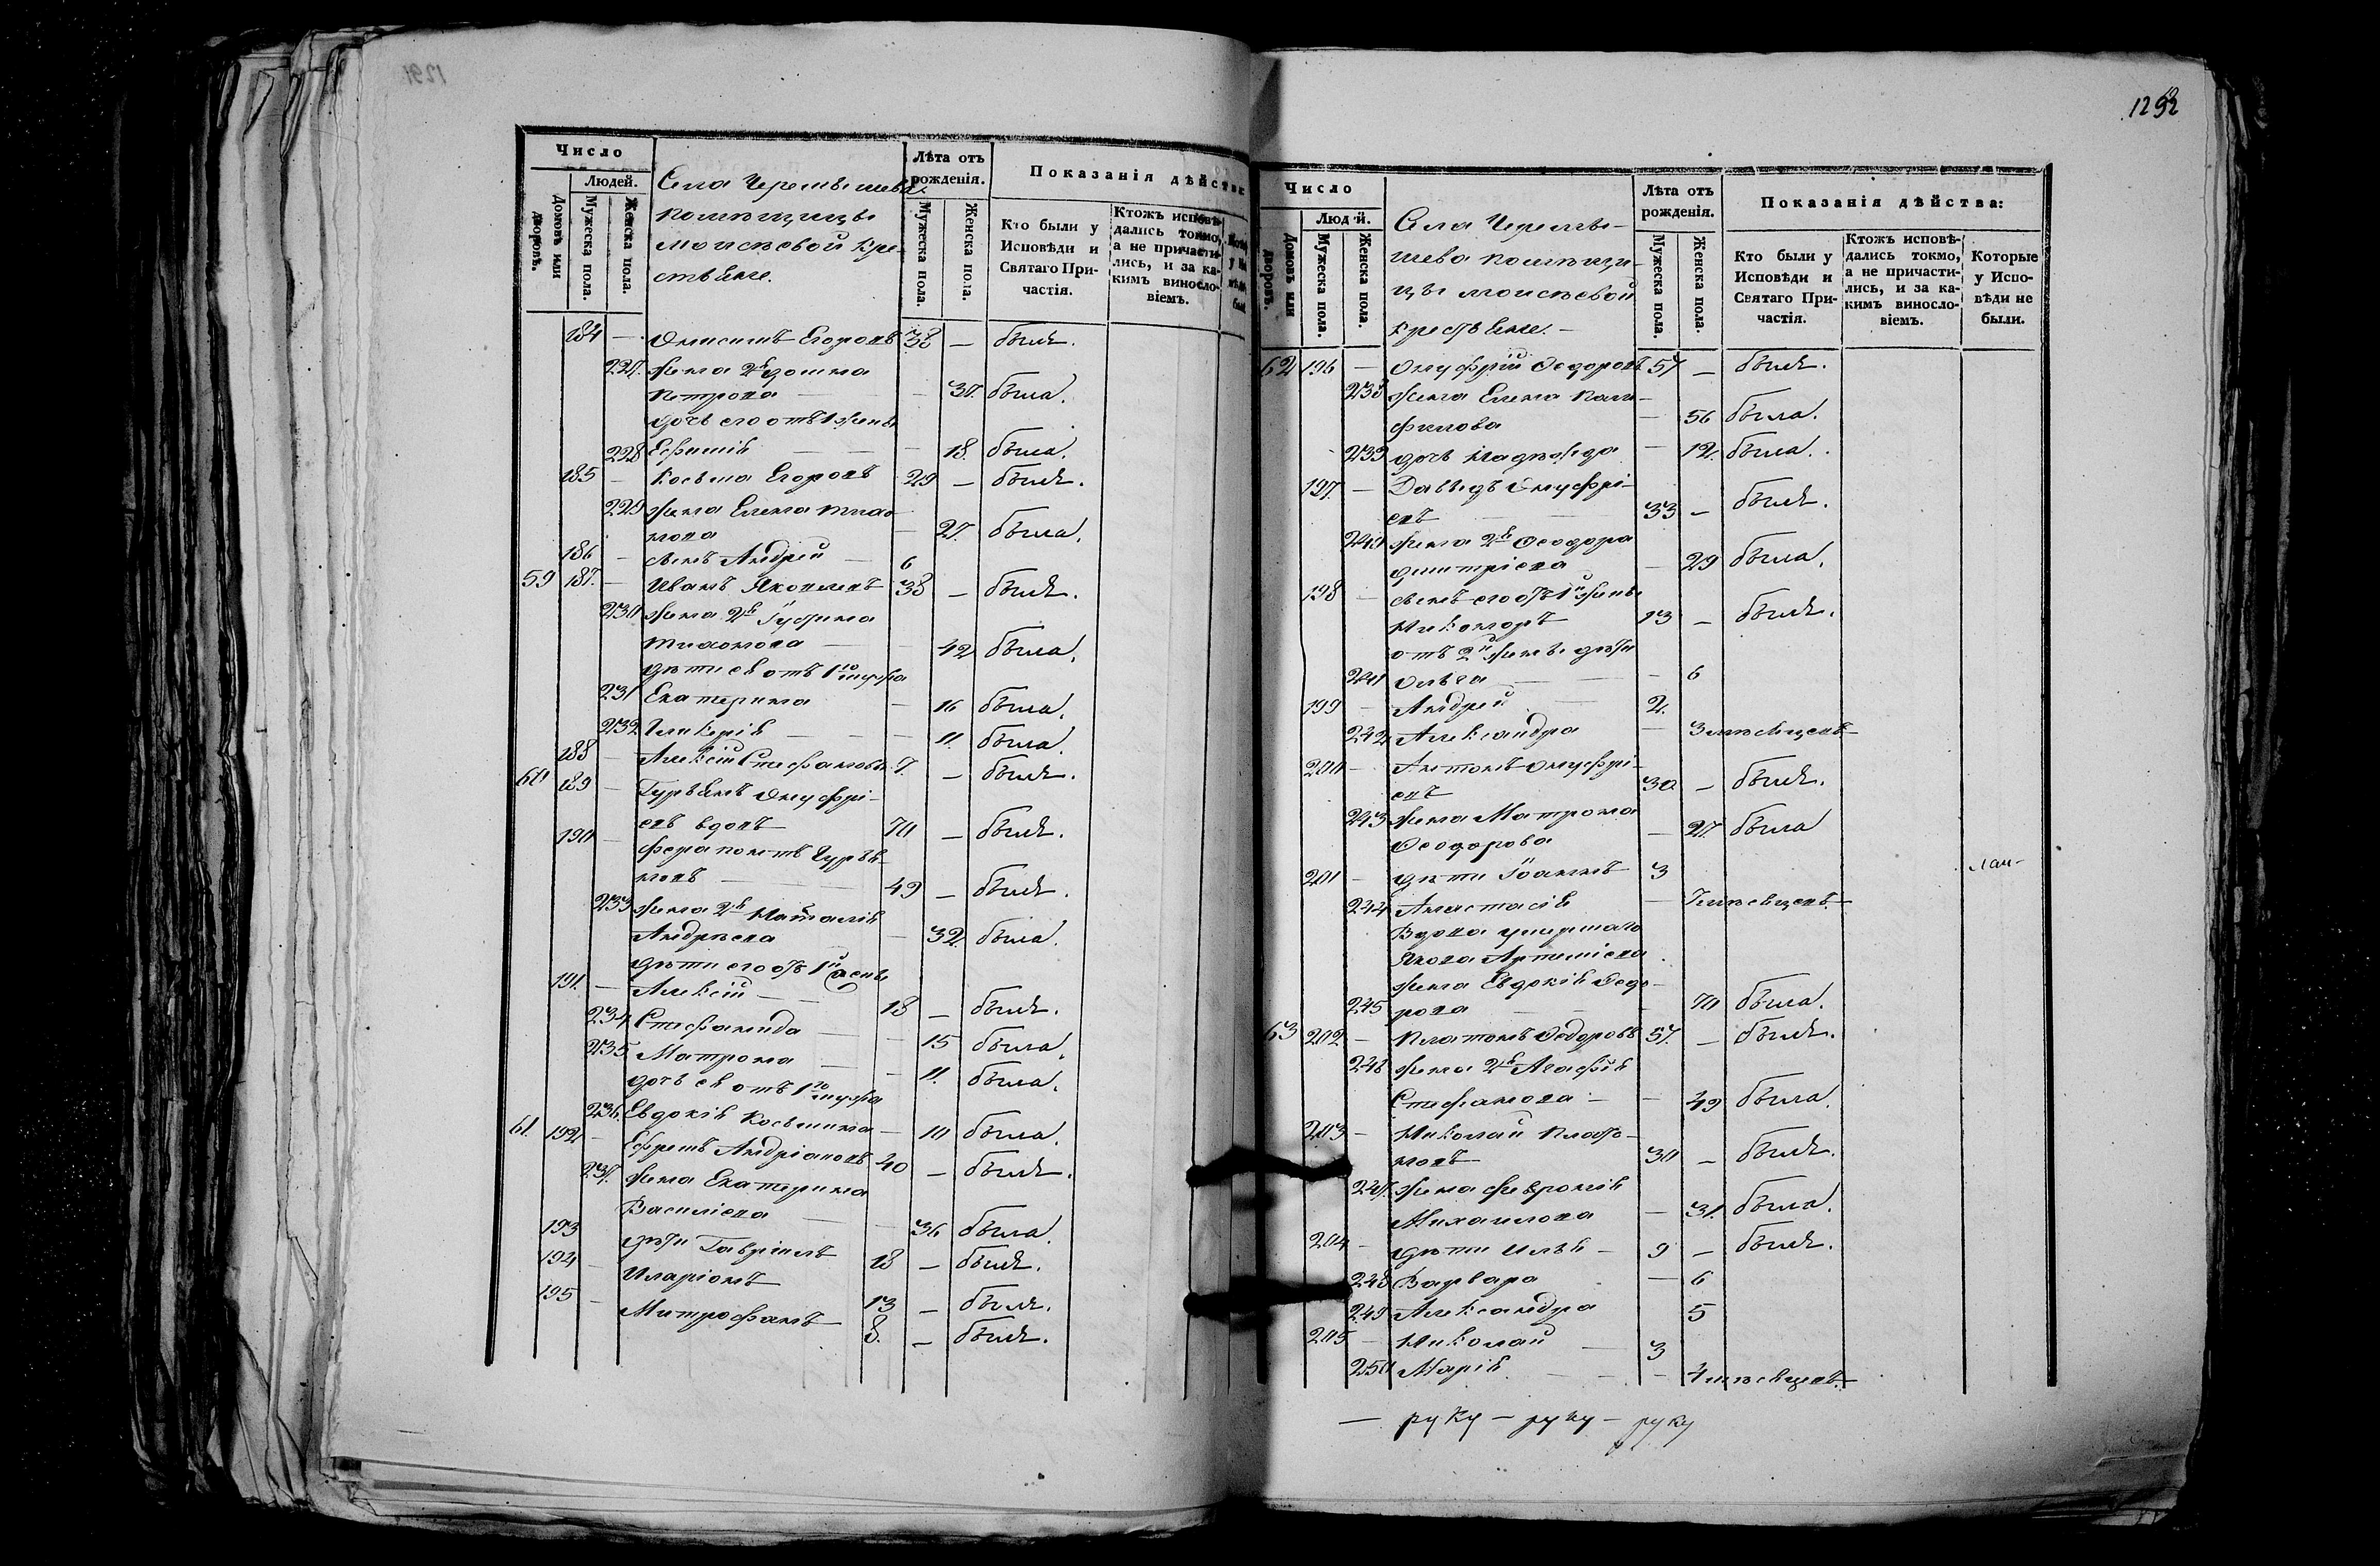 1291
Число
Людей.
Домовъ или дворовъ.
Мужеска пола.
Женска пола.
Села Черемышева
помѣщицы
Моисѣевой кре-
стьяне.
Лѣта отъ
рожденія.
Мужеска пола.
Женска пола.
Показанія дѣйства
Кто были у
Исповѣди и
Святаго При-
частія.
Ктожъ исповѣ-
дались токмо,
а не причасти-
лись, и за ка-
кимъ винословіемъ.
184 — Онисимъ Егоровъ 38 — былъ.
227. жена 2я
Петрова — 37. была.
дочь его отъ 1 жены
228 Ефимія — 18. была.
185 — Косьма Егоровъ 29 — былъ.
229 жена Елена Тихо-
нова — 27. была.
186 — сынъ Андрей — 6
59 187. — Иванъ Яковлевъ 38 — былъ.
230 жена 2я Іустина
Тихонова — 42 была.
дѣти ея отъ 1го мужа
231 Екатерина — 16 была.
232 Гликерія — 11. была.
188 — Алексій Стефановъ 7. — былъ.
60 189 — Гурьянъ Онуфрі-
евъ вдовъ 70 — былъ.
190 — Ферапонтъ Гурья-
новъ 49 — былъ.
233 жена 2я Наталія
Андреева — 32. была.
дѣти его отъ 1й жены
191. — Алексій — 18 — былъ.
234 Стефанида — 15 была.
235. Матрона — 11. была.
дочь ея отъ 1го мужа
236. Евдокія Косьмина — 10 была.
61. 192. — Ефремъ Андріановъ 40 — былъ.
237. жена Екатерина
Василіева — 36 была.
193 дѣти Гавріилъ 18 — былъ.
194 — Иларіонъ 13 — былъ.
195 — Митрофанъ 8. — былъ.
1292
Число
Людей.
Домовъ или дворовъ.
Мужеска пола.
Женска пола.
Села Черемы-
шева помѣщи-
цы Моисѣевой
крестьяне. —
Лѣта отъ
рожденія.
Мужеска пола.
Женска пола.
Показанія дѣйства:
Кто были у
Исповѣди и
Святаго При-
частія.
Ктожъ исповѣ-
дались токмо,
а не причасти-
лись, и за ка-
кимъ виносло-
віемъ.
Которые
у Испо-
вѣди не
были.
62 196 — Онуфрій Ѳедоровъ 57 — былъ.
238 жена Елена Пам-
филова — 56 была.
239 дочь Надежда — 12. была.
197. — Давыдъ Онуфрі-
евъ 33 — былъ.
240 жена 2я Ѳеодора
Димитріева — 29 была.
198 — сынъ его отъ 1й жены
Никоноръ 13 — былъ.
отъ 2й жены дѣти
241 Ольга — 6
199 — Андрей — 2.
242 Александра — 3 мѣсяцевъ
200 — Антонъ Онуфрі-
евъ 30 — былъ.
243 жена Матрона
Ѳеодорова — 27. была
201 — дѣти Іоаннъ 3
244 Анастасія — 7 мѣсяцевъ.
Вдова умершаго
Якова Артеміева
жена Евдокія Ѳедо-
245 рова — 70 была.
63 202. — Платонъ Ѳедоровъ 57. — былъ.
246 жена 2я Агафія
Стефанова — 49 была.
203 — Николай Плато-
новъ 30 — былъ.
247. жена Февронія
Михаилова — 31. была.
204 — дѣти Илья — 9 — былъ.
248 Варвара — 6
249 Александра 5
205 — Николай — 3
250 Марія — 4 мѣсяцевъ.
— руку — руку — руку